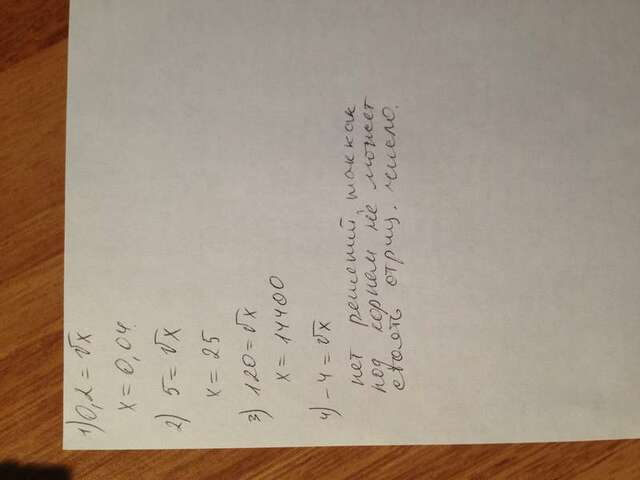 1) 0,2 = √x
x = 0,04.
2) 5 = √x
x = 25
3) 120 = √x
x = 14400
4) -4 = √x
нет решений, так как
под корнем не может
стоять отриц. число.